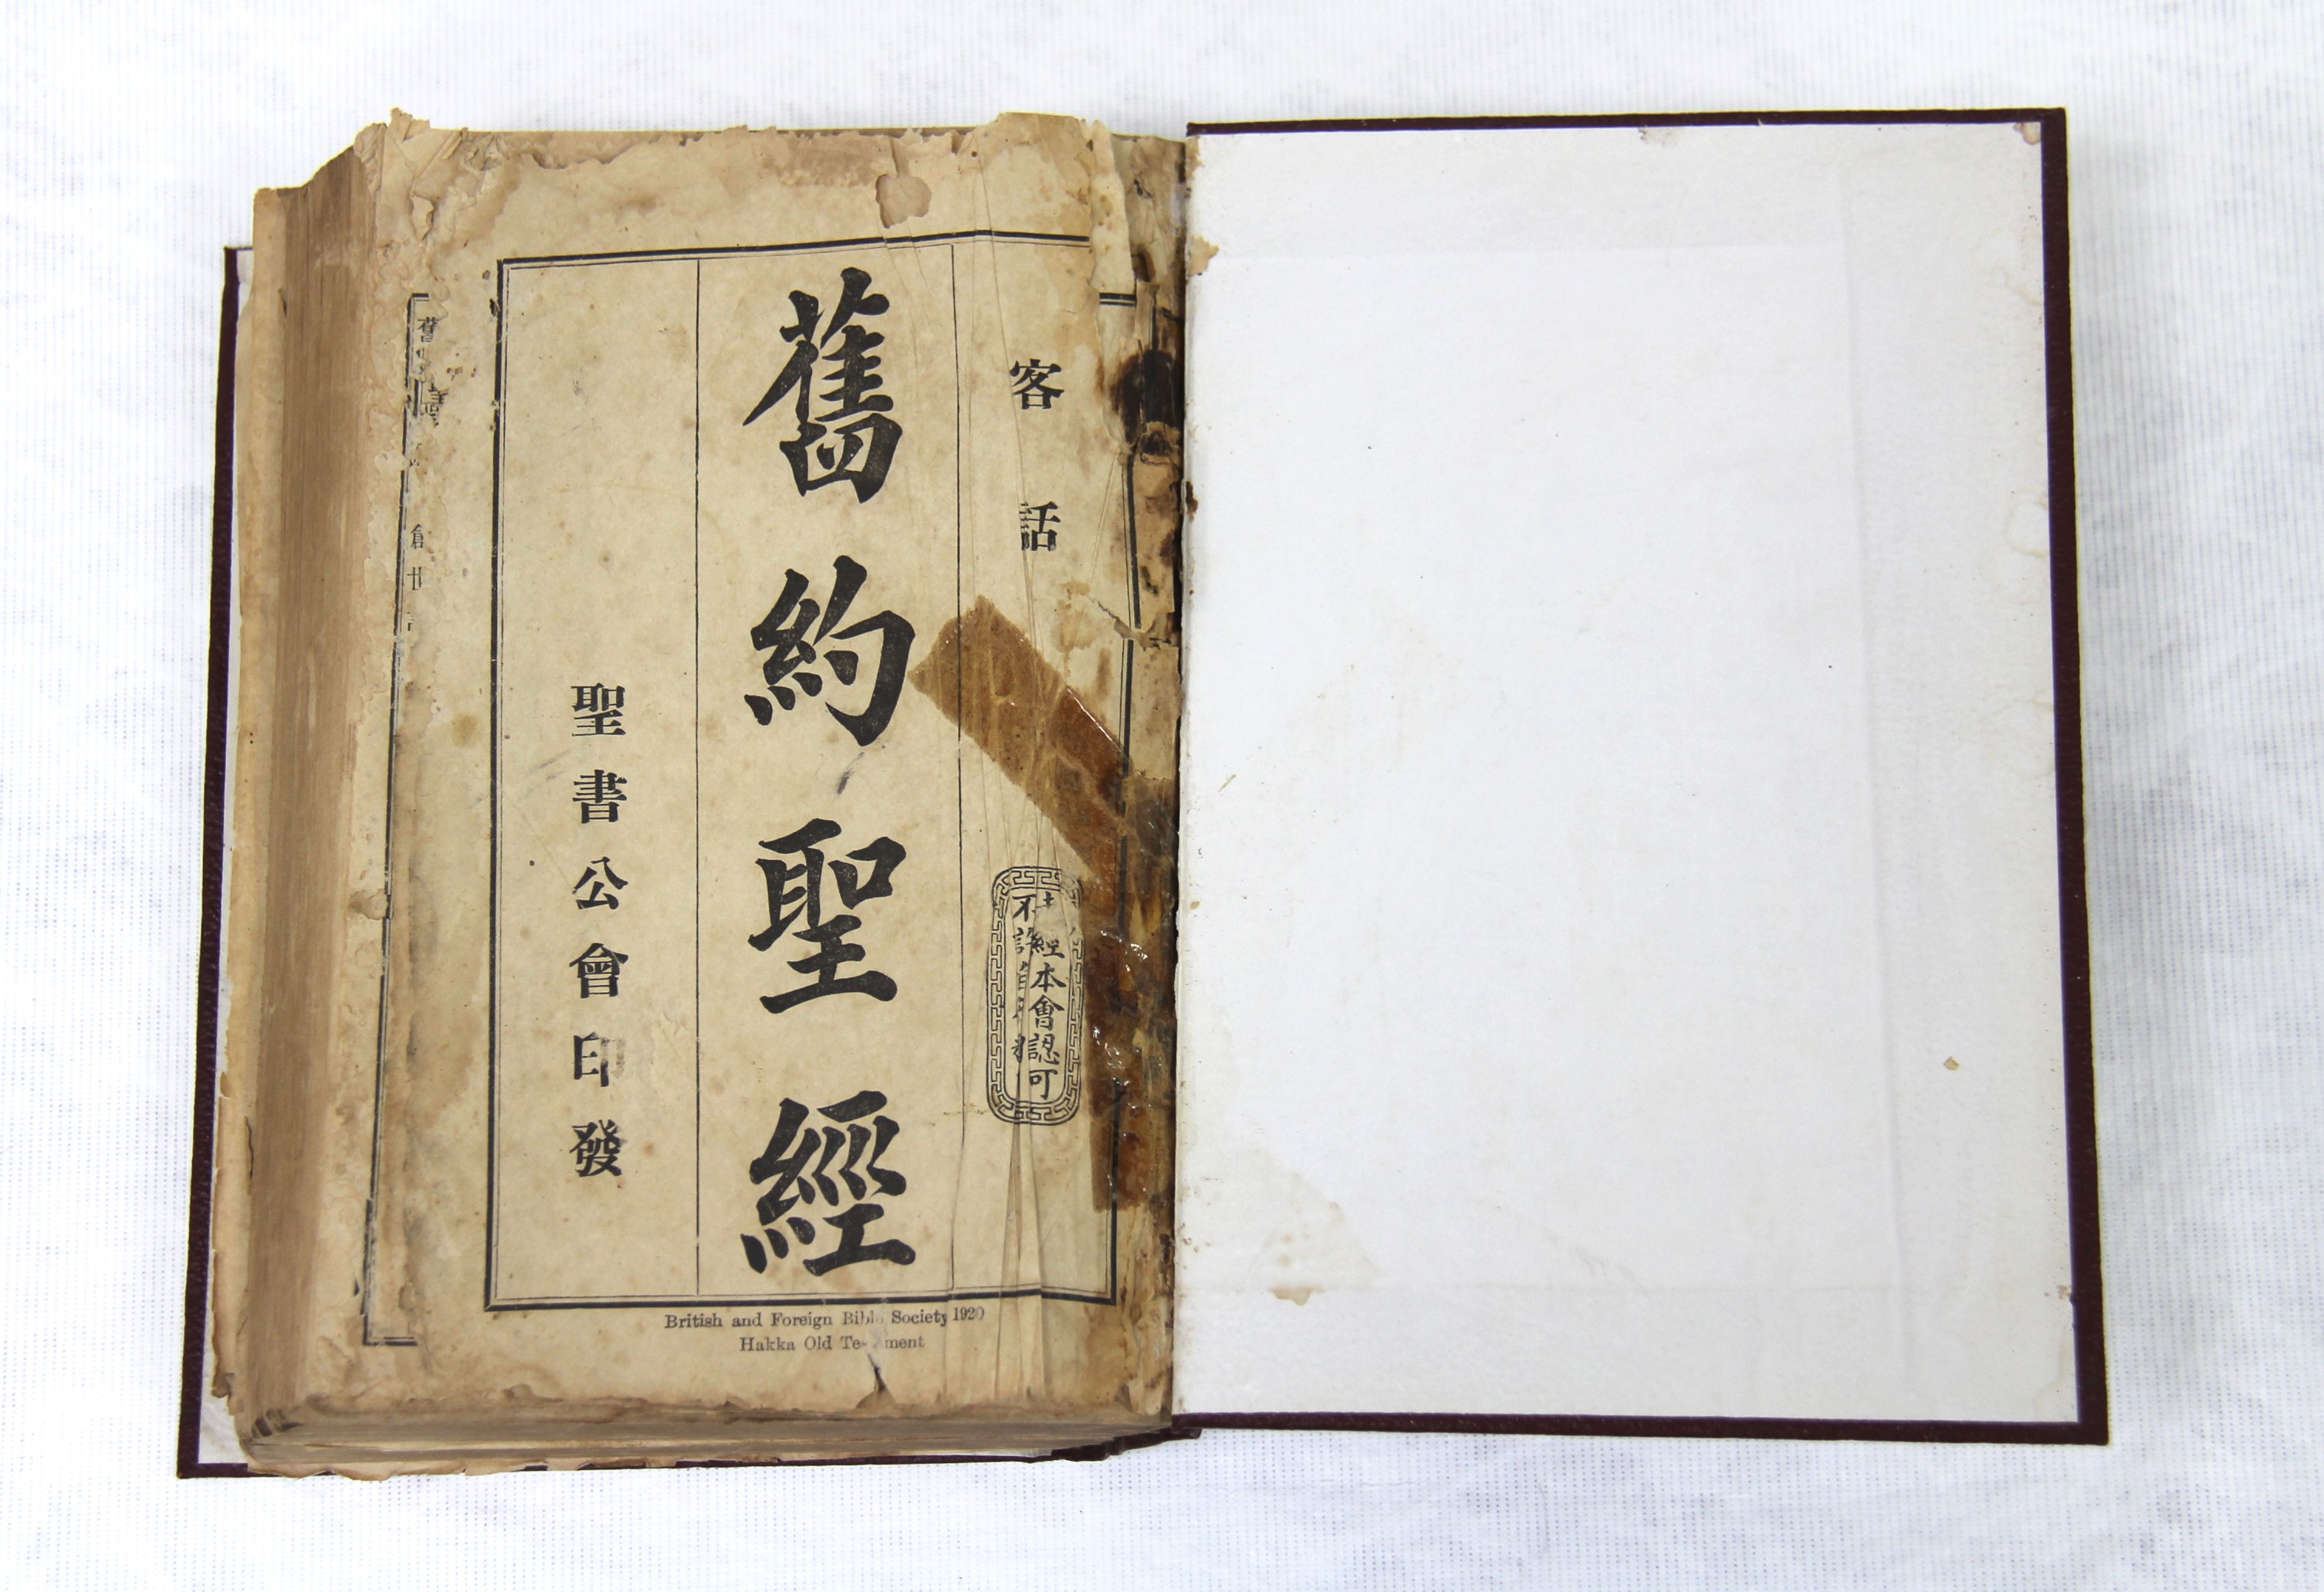 客話
經本會認可
不許
舊約聖經
聖書公會印發
British and Foreign Bible Society 1920
Hakka Old Testament